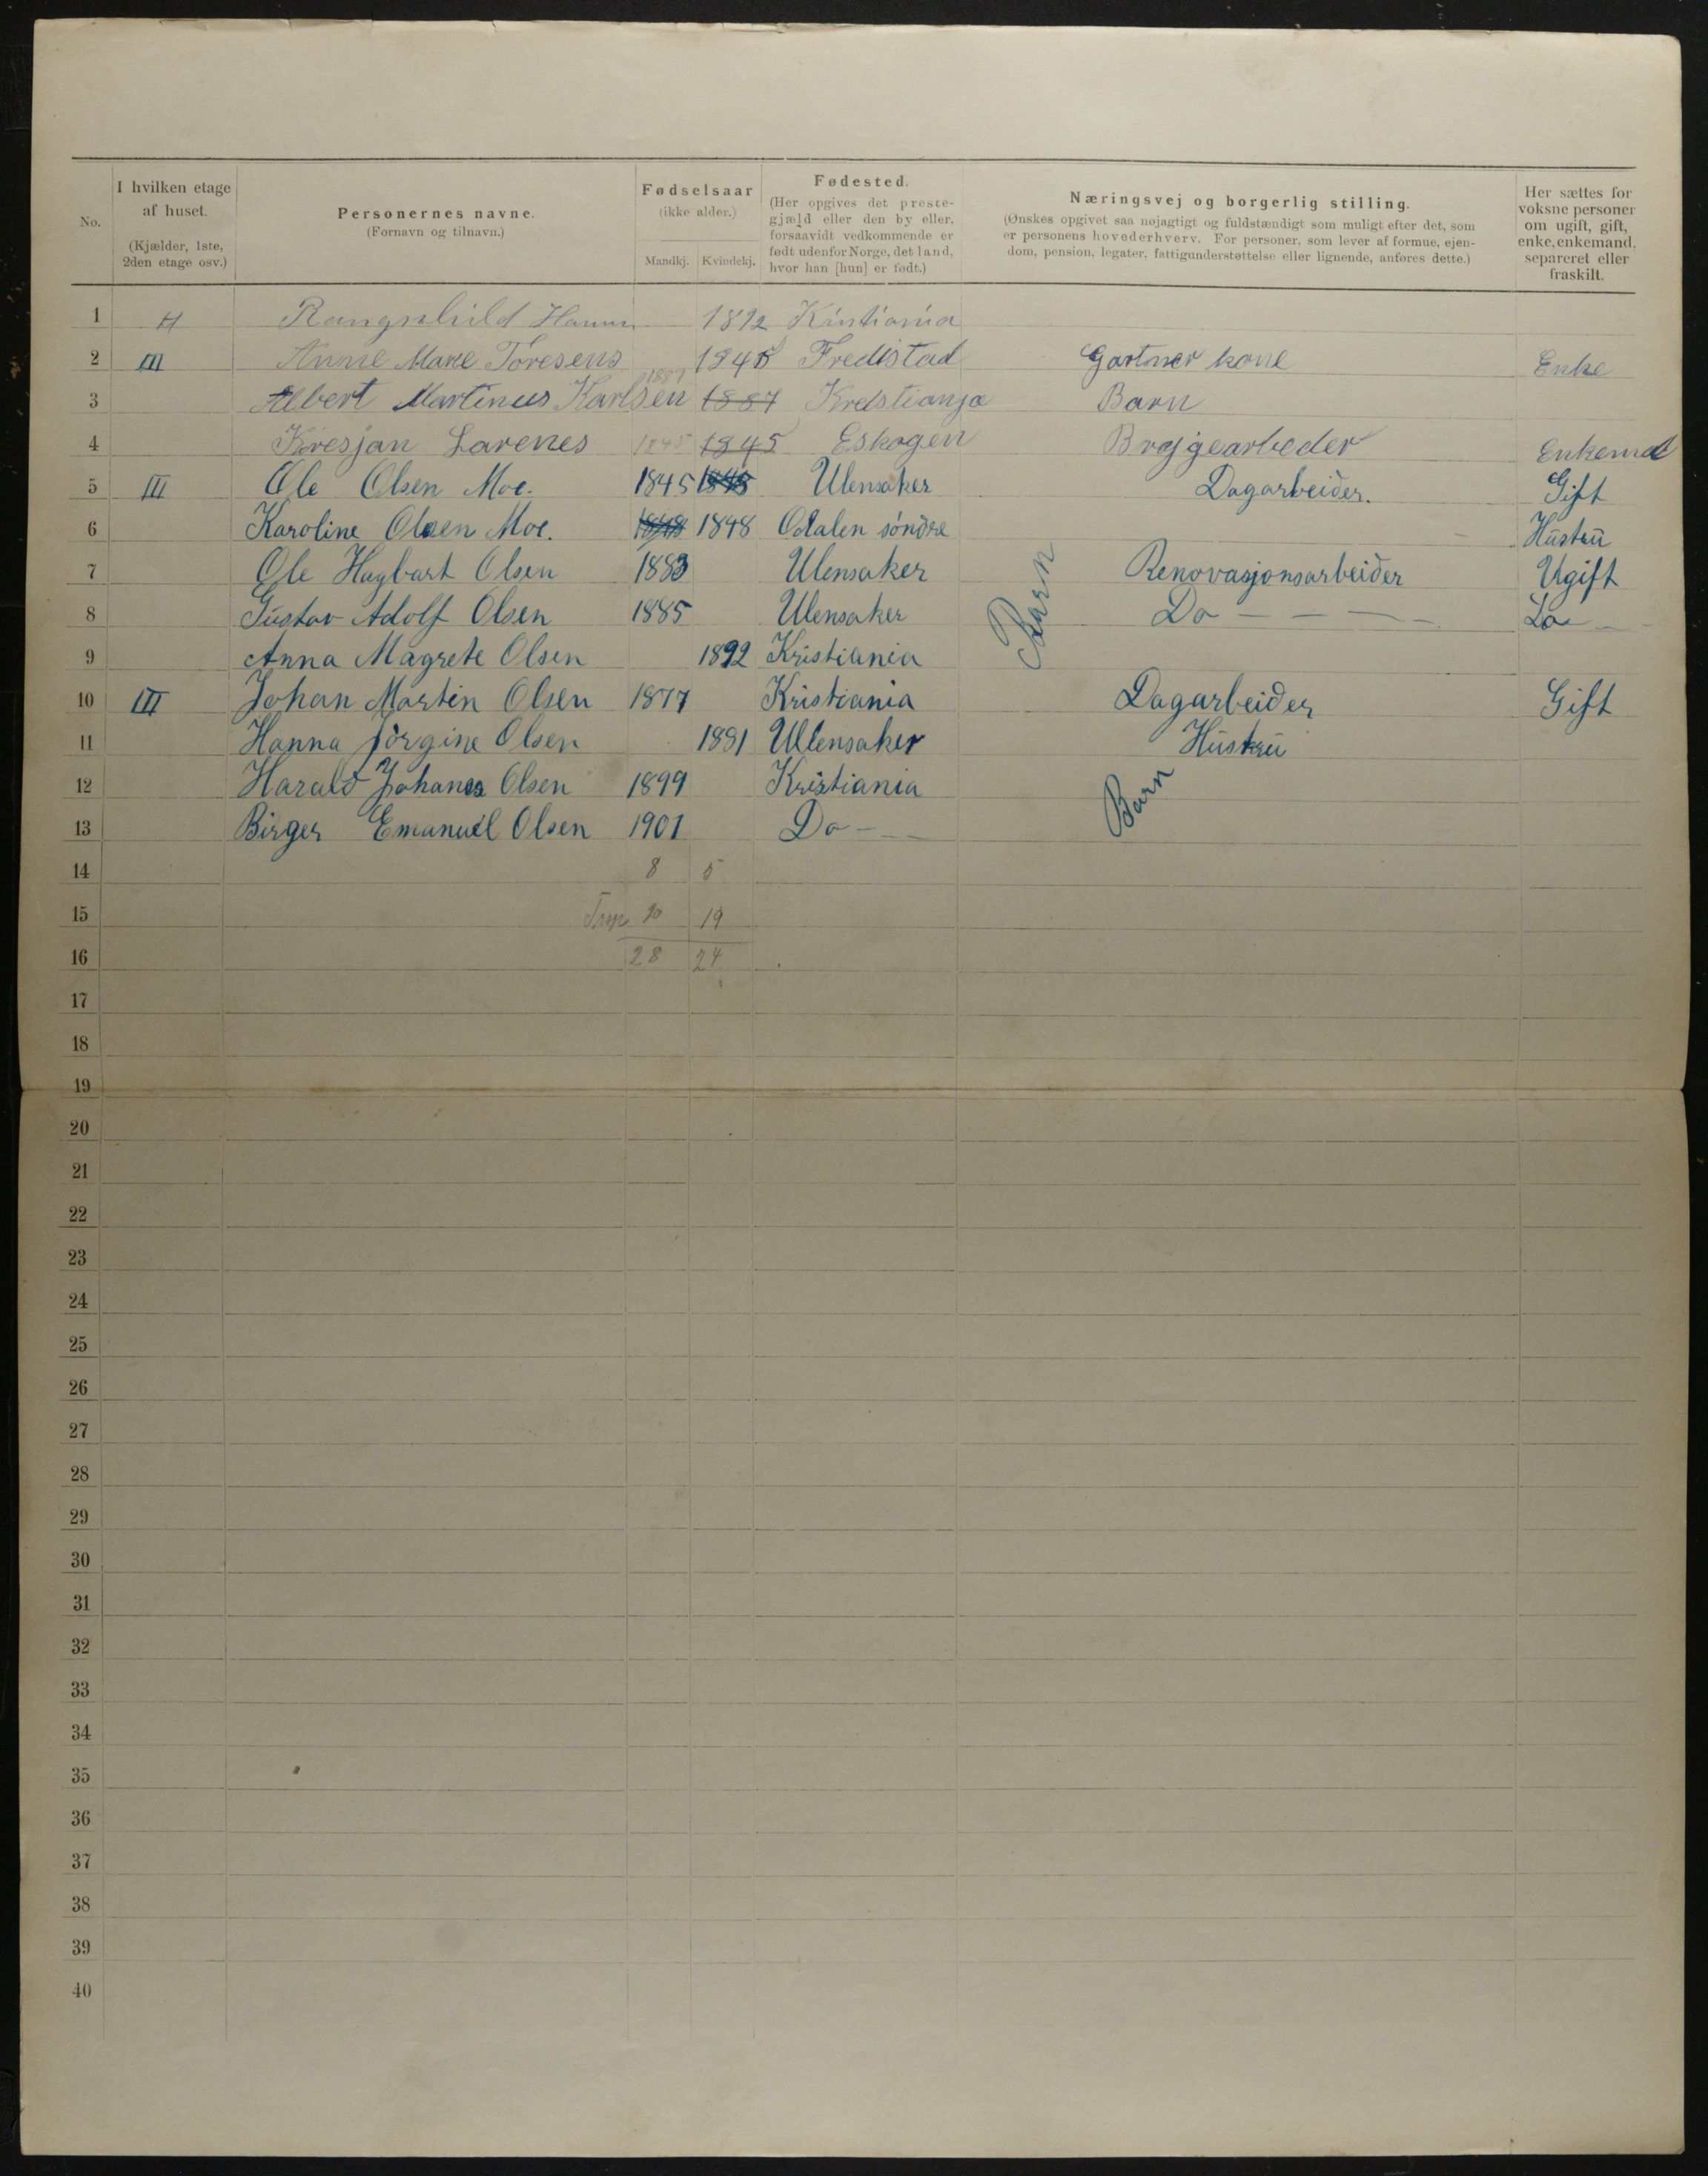 No.
I hvilken etage af huset.
(Kjælder, 1ste, 2den etage osv.)
Personernes navne.
(Fornavn og tilnavn.)
Fødselsaar
(ikke alder.)
Mandkj. Kvindekj.
Fødested.
(Her opgives det preste-
gjæld eller den by eller,
forsaavidt vedkommende er
født udenfor Norge, det land,
hvor han [hun] er født.)
Næringsvej og borgerlig stilling.
(Ønskes opgivet saa nøjagtigt og fuldstændigt som muligt efter det, som
er personens hovederhverv. For personer, som lever af formue, ejen-
dom, pension, legater, fattigunderstøttelse eller lignende, anføres dette.)
Her sættes for
voksne personer
om ugift, gift,
enke, enkemand,
separeret eller
fraskilt.
1 H Rangnhild 1892 Kristiania
2 III Anne Marie Toresens 1845 Fredistad Gartner kone Enke
3 Albert Martinus Karlsen 1887 1887 Kredstianja Barn
4 Kresjan Larenes 1845 1845 Eskogen Bryggearbeder Enkemd
5 III Ole Olsen Moe. 1845 1845 Ulensaker Dagarbeider. Gift
6 Karoline Olsen Moe. 1848 1848 Odalen söndre Hüstrü
7 Ole Hagbart Olsen 1883 Ulensaker Barn Renovasjonsarbeider Ugift
8 Güstav Adolf Olsen 1885 Ulensaker Do — — — Do —
9 Anna Magrete Olsen 1892 Kristiania
10 III Johan Martin Olsen 1877 Kristiania Dagarbeider Gift
11 Hanna Jörgine Olsen 1881 Ullensaker Hüstrü
12 Harald Johanes Olsen 1899 Kristiania Barn
13 Birger Emanuel Olsen 1901 Do —
14 8 5
15 20 19
16 28 24
17
18
19
20
21
22
23
24
25
26
27
28
29
30
31
32
33
34
35
36
37
38
39
40